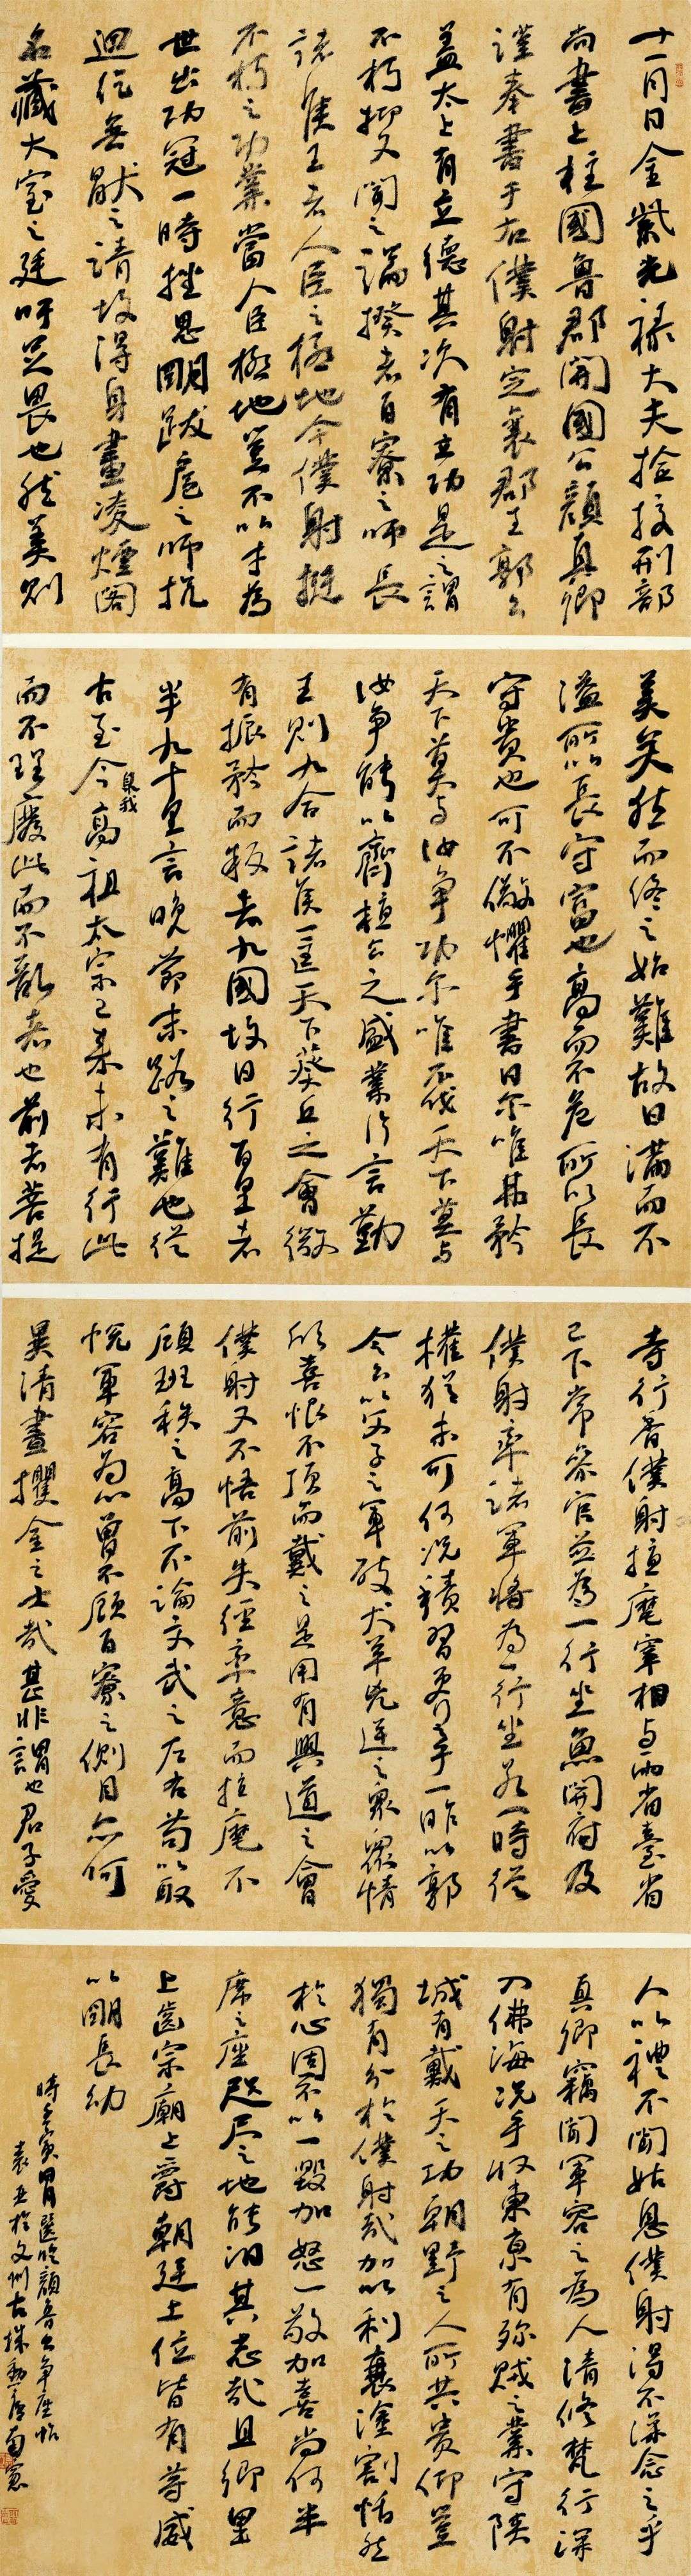 十一月日金紫光祿大夫撿挍刑部
尚書上柱國魯郡開國公顏真卿
謹奉書于右僕射定襄郡王郭公
蓋太上有立德其次有立功是之謂
不朽抑又聞之端揆者百寮之師長
諸侯王者人臣之極地今僕射挺
不朽之功業當人臣極地豈不以才為
世出功冠一時挫思明跋扈之師抗
迴紇無猒之請故得身畫凌煙閣
名藏太室之廷吁足畏也然美則
美矣然而終之始難故曰滿而不
溢所以長守富也高而不危所以長
守貴也可不儆懼乎書曰爾唯弗矜
天下莫與汝爭功爾唯不伐天下莫與
汝爭能以齊桓公之盛業片言勤
王則九合諸侯一匡天下葵丘之會微
有振矜而叛者九國故曰行百里者
半九十里言晚節末路之難也從
古至今泉我高祖太宗已來未有行此
而不理廢此而不亂者也前者菩提
寺行香僕射指麾宰相與兩省臺省
已下常參官並為一行坐魚開府及
僕射率諸軍將為一行坐若一時從
權猶未可何況積習更行之乎一昨以郭
令公以父子之軍破犬羊兇逆之眾眾情
欣喜恨不頂而戴之是用有興道之會
僕射又不悟前失徑率意而指麾不
顧班秩之高下不論文武之左右苟以取
悅軍容為心曾不顧百寮之側目亦何
異清晝攫金之士哉甚非謂也君子愛
人以禮不聞姑息僕射得不深念之乎
真卿竊聞軍容之為人清修梵行深
入佛海況乎收東京有殄賊之業守陝
城有戴天之功朝野之人所共貴仰豈
獨有分於僕射哉加以利衰塗割恬然
於心固不以一毀加怒一敬加喜尚何半
席之座咫尺之地能汨其志哉且鄉里
上齒宗廟上爵朝廷上位皆有等威
以明長幼
時壬寅胃月醫臨顏魯公爭座帖